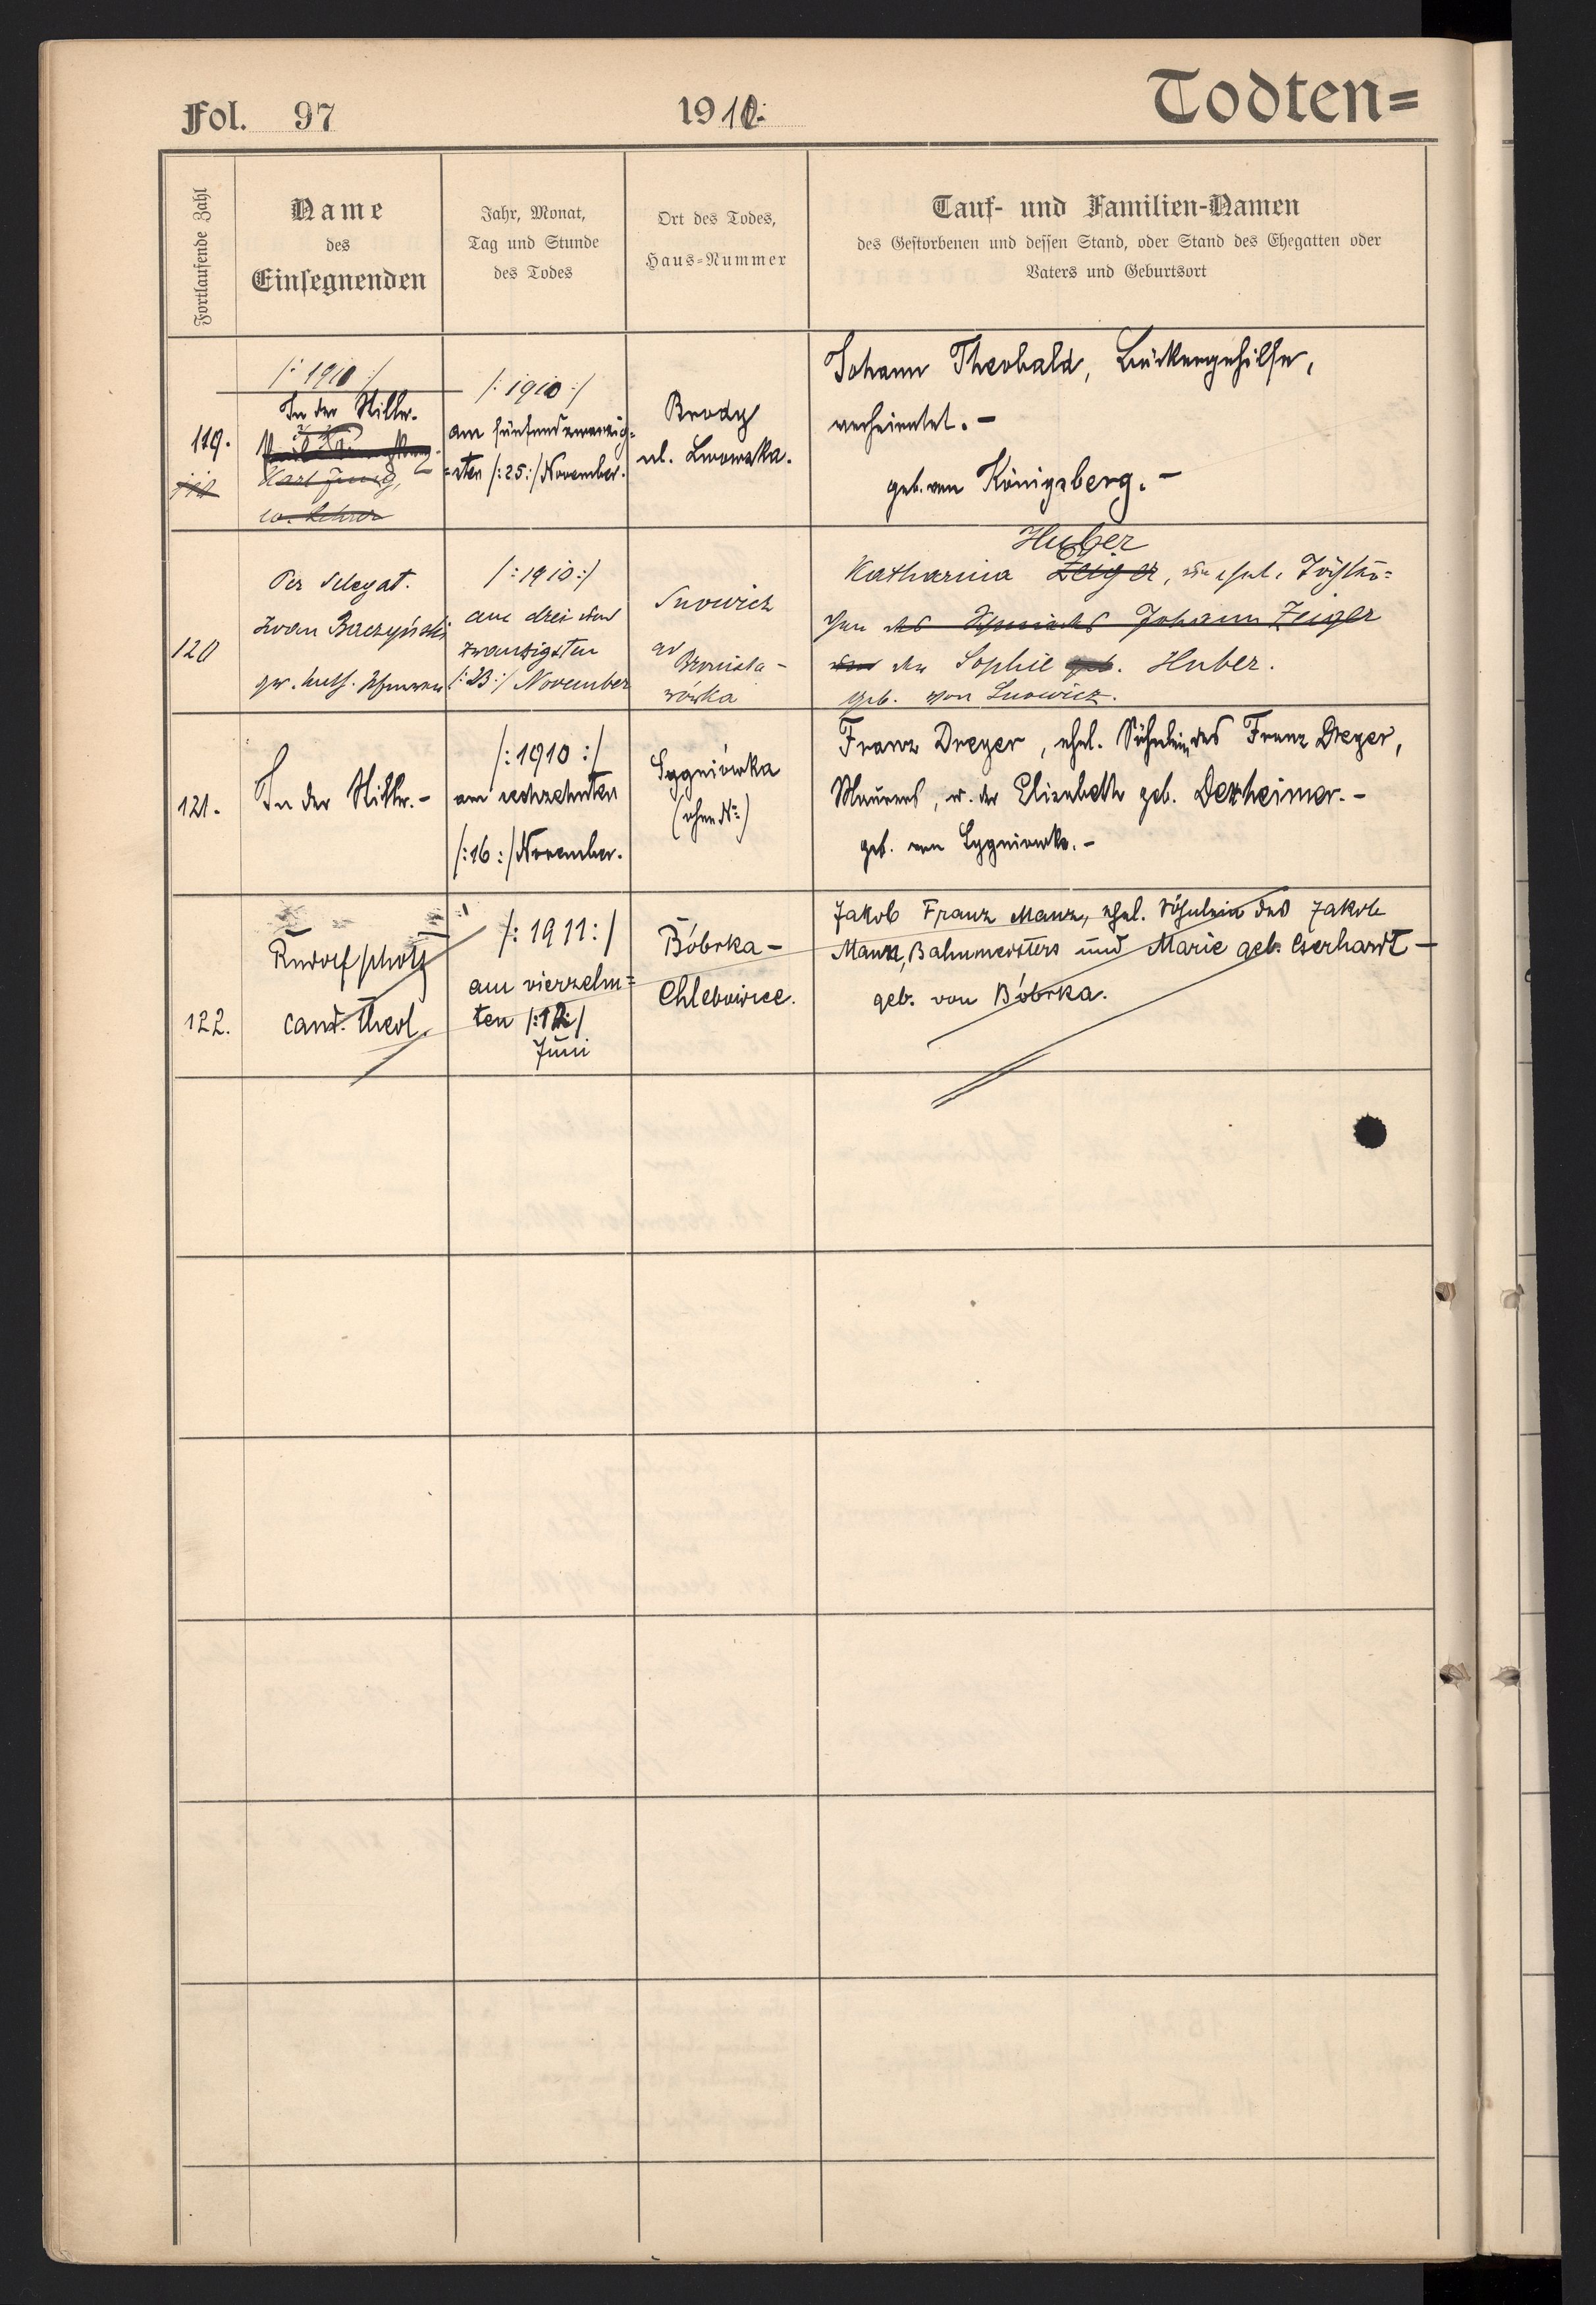 Fol. 97
1910.
Todten=
Fortlaufende Zahl
Name
des
Einsegnenden
Jahr, Monat,
Tag und Stunde
des Todes
Ort des Todes,
Haus-Nummer
Tauf- und Familien-Namen
des Gestorbenen und dessen Stand, oder Stand des Ehegatten oder
Vaters und Geburtsort
119.
/: 1910 :/
In der Stille.
Karl Jung,
Lehrer
/: 1910 :/
am fünfundzwanzig=
=sten /:25:/ November.
Brody
ul. Lwowska.
Johann Theobald, Bäckergehilfe,
verheiratet. -
geb. von Königsberg. -
120
Per delegat.
Iwan Baczyński
/: 1910 :/
am drei und
zwanzigsten
/:23:/ November
Huber
Katharina Zeiger, Töchter=
chen des Johann Zeiger
der Sophie geb. Huber.
geb. von
121.
In der Stille. -
/: 1910 :/
am sechzehnten
/:16:/ November.
Sygniówka
(ohne No)
Franz Dreyer, ehel. Söhnlein des Franz Dreyer,
Maurers, u. der Elisabeth geb. Dexheimer. -
geb. von Sygniówka. -
122.
Rudolf Scholz
cand. theol.
/: 1911 :/
am vierzehn=
ten
Juni
Bóbrka -
Chlebowice.
Jakob Franz Manz, ehel. Söhnlein des Jakob
Manz, Bahnmeisters und Marie geb. Eserhardt -
geb. von Bóbrka.